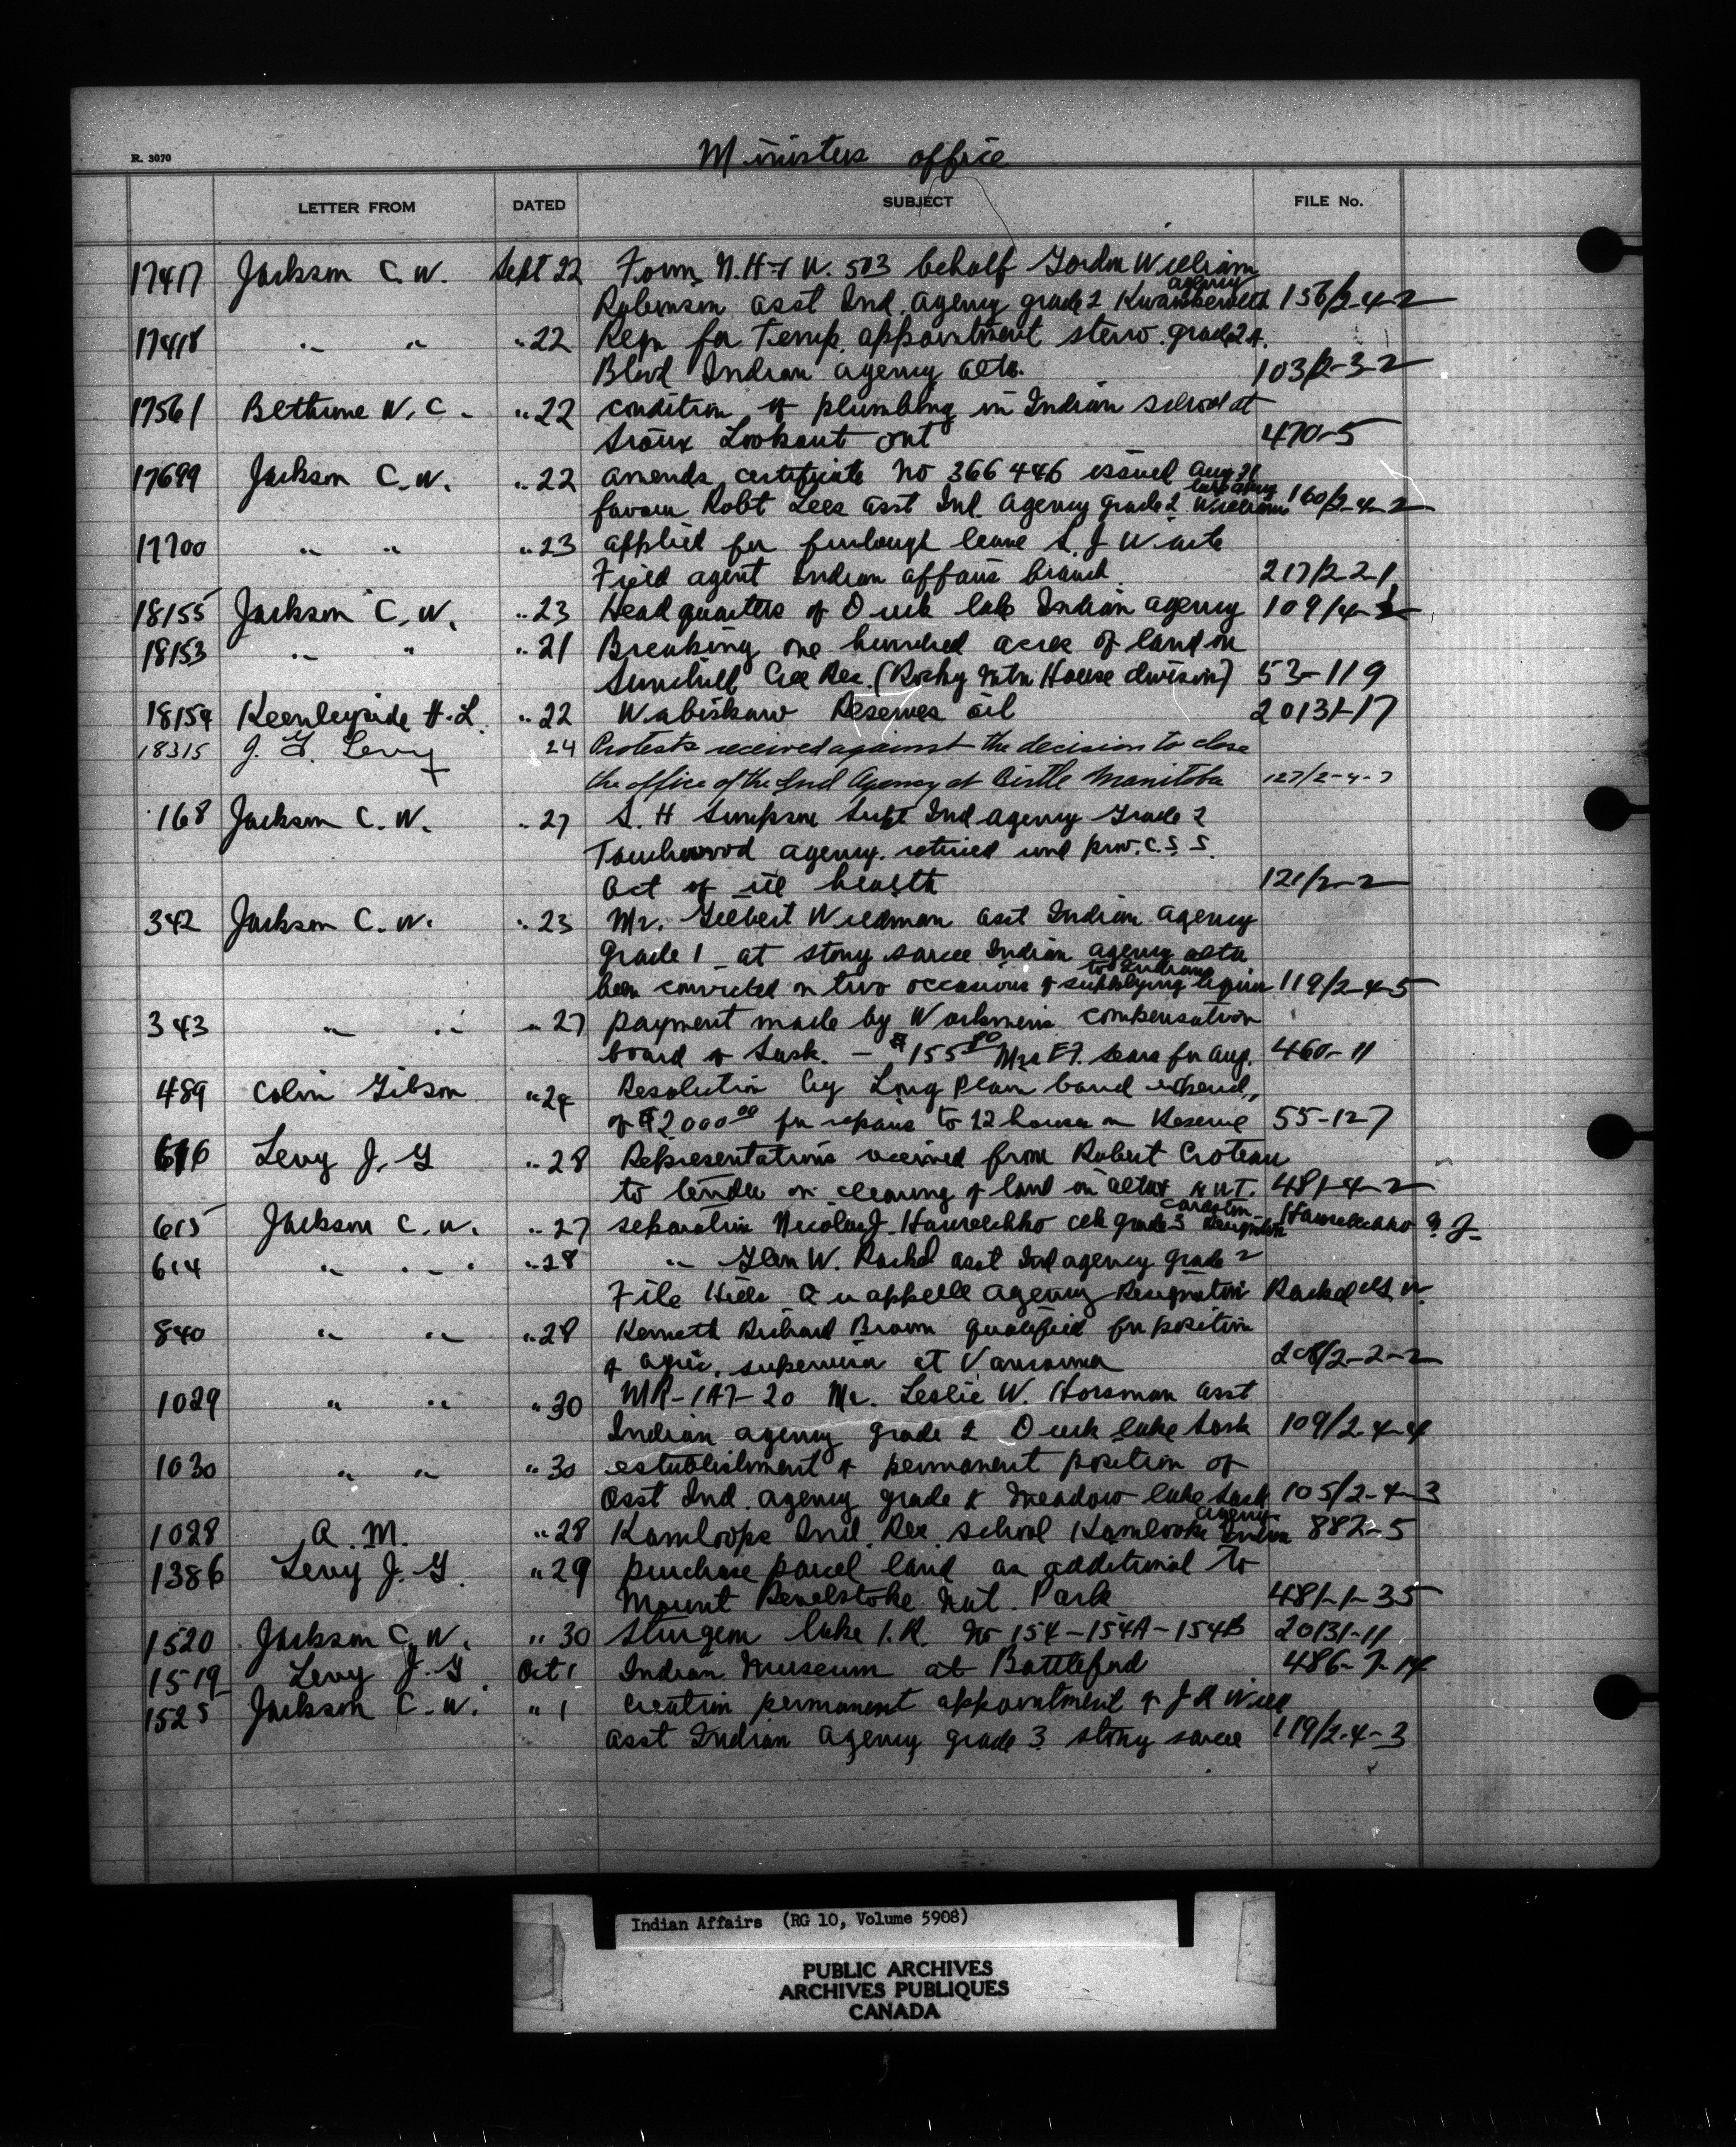 R. 3070
Ministers office
LETTER FROM DATED SUBJECT FILE No.
17417 Jackson C. W. Sept 22 Form N.H & W. 503 behalf Gordon William
agency
Robinson asst Ind. Agency grade 2 156/2-4-2
17418 " " " 22 Reqn for Temp. appointment steno. grade 2 A.
Blood Indian Agency Alta. 103/2-3-2
17561 Bethune W. C. " 22 condition of plumbing in Indian school at
Sioux Lookout Ont 470-5
17699 Jackson C. W. " 22 amends certificate No 366446 issued Aug 31
favour Robt Lees asst Ind. Agency grade 2 Williams 160/2-4-2
17700 " " " 23 applied for furlough leave S. J Waite
Field agent Indian affairs branch 217/2-2-1
18155 Jackson C. W. " 23 Headquarters of Duck lake Indian agency 109/4-1
18153 " " " 21 Breaking one hundred acres of land on
Sunchild Cree Res. (Rocky Mtn House division) 53-119
18154 Keenleyside H. L. " 22 Wabiskaw Reserves oil 20131-17
18315 J. G. Levy 24 Protests received against the decision to close
the office of the Ind Agency at Birtle Manitoba 127/2-4-7
168 Jackson C. W. " 27 S. H Simpson Supt Ind agency Grade 2
Touchwood agency. retired und prov. C. S. S.
Act of ill health 121/2-2
342 Jackson C. W. " 23 Mr. Gilbert Wildman asst Indian Agency
Grade 1 at stony sarcee Indian agency alta
to Indians
been convicted on two occasions of supplying liquor 119/2-4-5
343 " " " 27 payment made by Workmens compensation
board of Sask. - $155.80 Mrs E F. Sears for Aug. 460-11
489 Colin Gibson " 24 Resolution by Long Plain band expend,,
of $2000.00 for repairs to 12 houses on Reserve 55-127
616 Levy J. G " 28 Representations received from Robert Croteau
to tender on clearing of land in alta & N W T. 481-4-2
Cardston
615 Jackson C. W. " 27 separation Nicolas J. Hawrelchko clk grade 3 Resignation Hawrelchko N J
614 " " " 28 " Glen W. Rached asst Ind agency grade 2
File Hills Quappelle Agency Resignation Rached G W
840 " " " 28 Kenneth Richard Brown qualified for position
of agric. supervisor at Vancouver 208/2-2-2
1029 " " " 30 MR-1A7-20 Mr. Leslie W. Horsman asst
Indian agency grade 2 Duck lake Sask 109/2-4-4
1030 " " " 30 establishment of permanent position of
Asst Ind. agency grade meadow lake Sask 105/2-4-3
agency
1028 A. M. " 28 Kamloops Ind. Res. School Kamloops Indian 882-5
1386 Levy J. G. " 29 purchase parcel land as additional to
Mount Revelstoke Nat. Park 481-1-35
1520 Jackson C. W. " 30 Sturgeon lake I. R. No 154-154A-154B 20131-11
1519 Levy J. G Oct 1 Indian Museum at Battleford 486-7-14
1525 Jackson C. W. " 1 creation permanent appointment of J R Wild
asst Indian Agency grade 3 stony sarcee 119/2-4-3
Indian Affairs (RG 10, Volume 5908)
PUBLIC ARCHIVES
ARCHIVES PUBLIQUES
CANADA